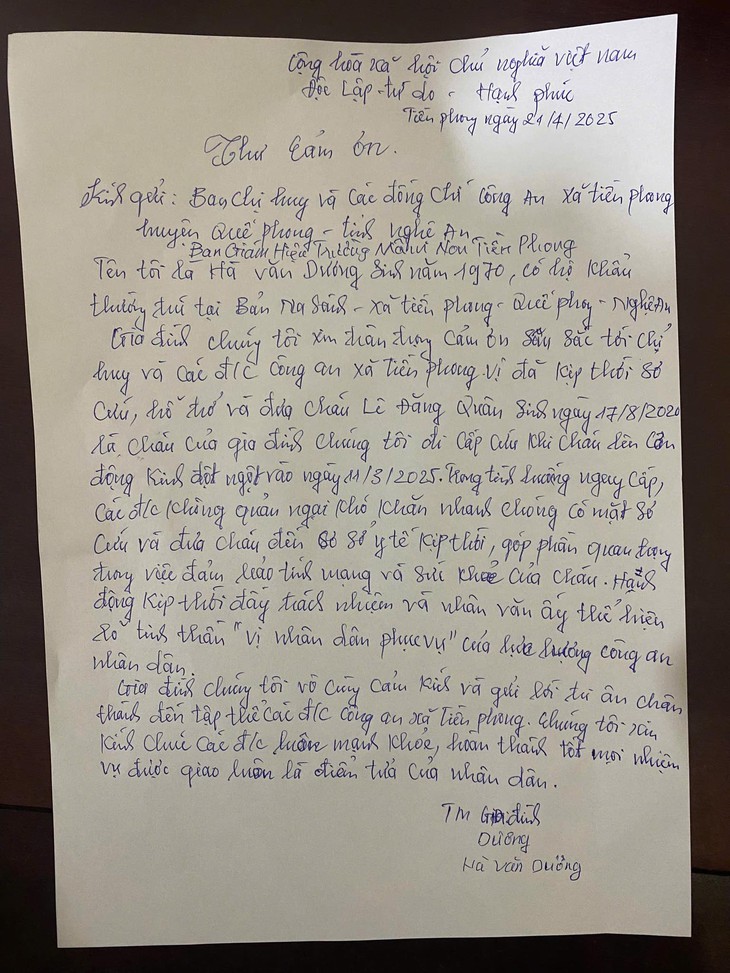 Cộng hòa xã hội chủ nghĩa việt nam
Độc Lập - tự do - Hạnh phúc
Tiền phong ngày 21/4/2025
Thư Cảm ơn.
Kính gửi: Ban chỉ huy và các đồng chí Công An xã tiền phong
huyện Quế phong - tỉnh nghệ An
Ban Giám Hiệu Trường Mầm Non Tiền Phong
Tên tôi là Hà văn Dương Sinh năm 1970, có hộ khẩu
thường trú tại Bản Na Sành - xã tiền phong - Quế phong - Nghệ An
Gia đình chúng tôi xin trân trọng cảm ơn sâu sắc tới chỉ
huy và các đ/c công an xã Tiền phong vị đã kịp thời sơ
cứu, hỗ trợ và đưa cháu Lê Đăng Quân Sinh ngày 17/8/2020
là cháu của gia đình chúng tôi đi cấp cứu khi cháu lên cơn
động kinh đột ngột vào ngày 11/3/2025. Trong tình huống nguy cấp,
các đ/c không quản ngại khó khăn nhanh chóng có mặt sơ
cứu và đưa cháu đến cơ sở y tế kịp thời, góp phần quan trọng
trong việc đảm bảo tính mạng và sức khoẻ của cháu. Hành
động kịp thời đầy trách nhiệm và nhân văn ấy thể hiện
rõ tinh thần "vị nhân dân phục vụ" của lực lượng công an
nhân dân.
Gia đình chúng tôi vô cùng cảm kích và gửi lời tri ân chân
thành đến tập thể các đ/c công an xã Tiền phong. Chúng tôi xin
kính chúc các đ/c luôn mạnh khoẻ, hoàn thành tốt mọi nhiệm
vụ được giao luôn là điểm tựa của nhân dân.
TM Gia đình
Dương
Hà Văn Dương